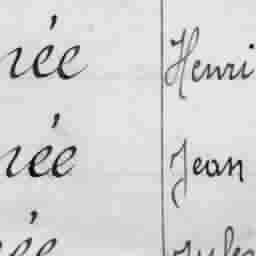 née Henri
née Jean
née Jules